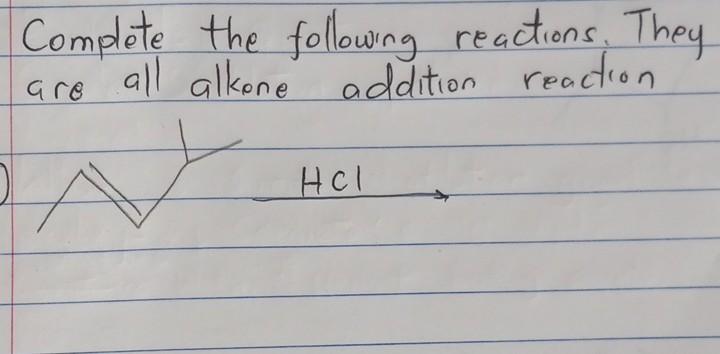 Complete the following reactions. They
are all alkene addition reaction
)
HCl